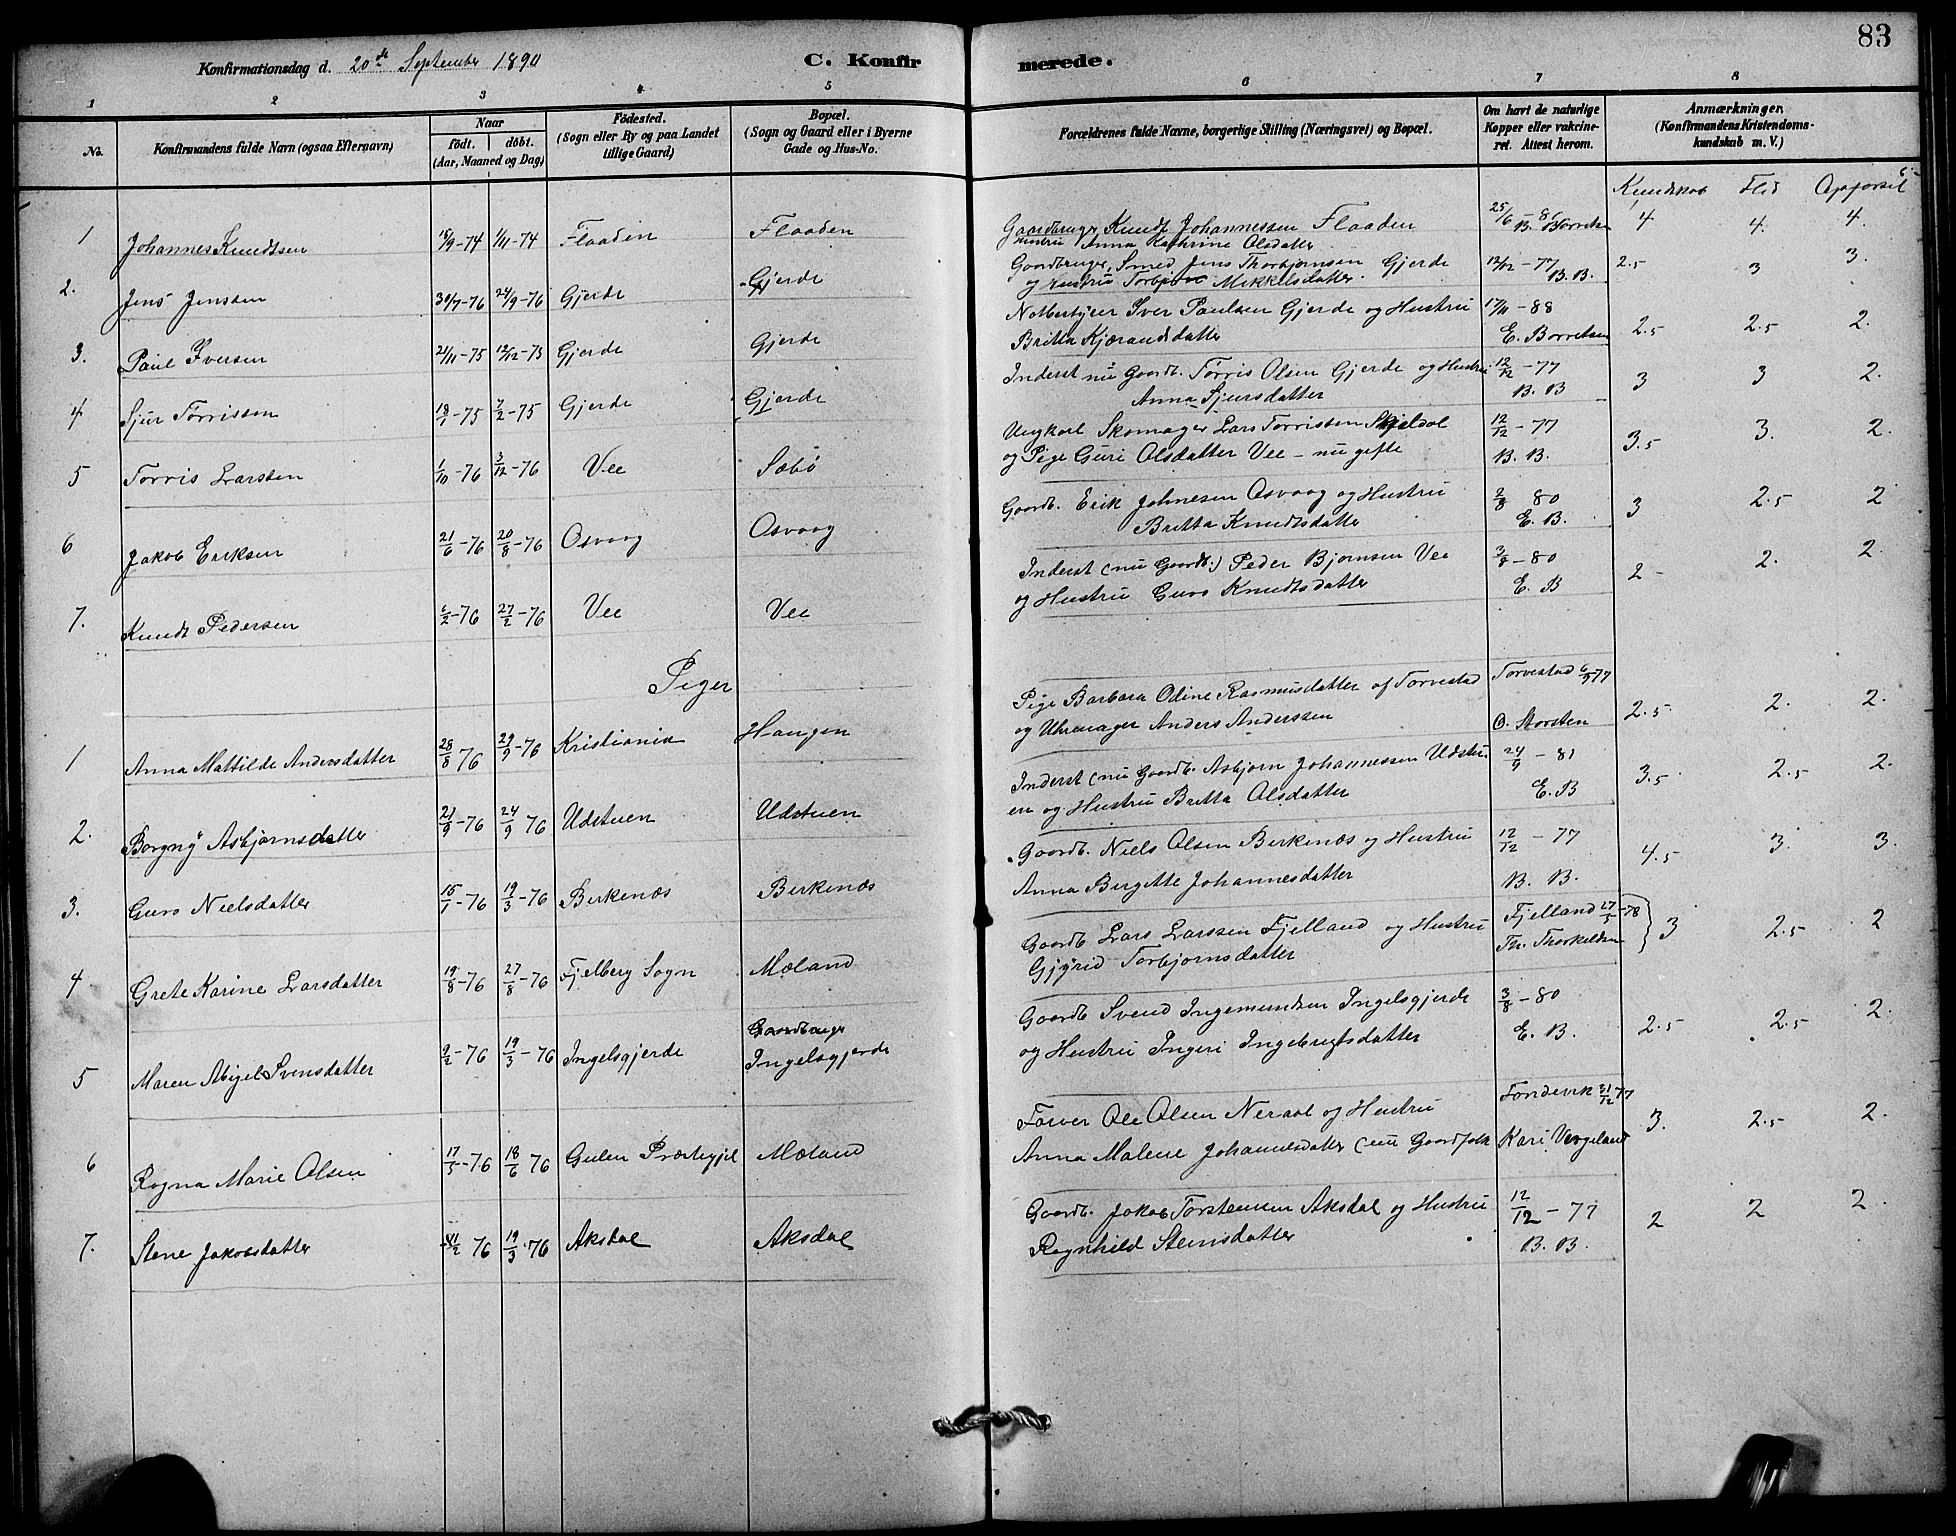 83
Konfirmationsdag d. 20de September 1890 C. Konfirmerede.
1 2 3 4 5 6 7 8
No. Konfirmandens fulde Navn (ogsaa Efternavn) Naar født. døbt. (Aar, Maaned og Dag) Fødested. (Sogn eller By og paa Landet tillige Gaard) Bopæl. (Sogn og Gaard eller i Byerne Gade og Hus-No. Forældrenes fulde Navne, borgerlige Stilling (Næringsvei) og Bopæl. Om havt de naturlige Kopper eller vakcineret. Attest herom. Anmærkninger. (Konfirmandens Kristendomskundskab m. V.)
Kundskab Flid Opførsel
1 Johannes Knudtsen 15/9-74 1/11-74 Flaaden Flaaden Gaardbruger Knudt Johannessen Flaaden 25/6 4 4. 4.
Hustru Anna Kathrine Olsdatter
2. Jens Jenssen 30/7-76 24/9-76 Gjerde Gjerde Gaardbruger, Smed Jens Thorbjørnsen Gjerde 12/12-77 2.5 3 3.
og Hustru Mikkelsdatter. B. B.
3. Paul Iversen 21/11-75 12/12-75 Gjerde Gjerde Iver Paulsen Gjerde og Hustru 17/11-88 2.5 2.5 2.
Britta Kjærandsdatter E. Borretsen
4 Sjur Torrissen 18/1-75 7/2-75 Gjerde Gjerde Inderst nu Gaardb. Torris Olsen Gjerde og Hustru 12/12-77 3 3 2.
Anna Sjursdatter B. B
5 Torris Larssen 1/10-76 3/12-76 Vee Søbø Ungkarl Skomager Lars Torrissen 12/12-77 3.5 3. 2.
og Pige Guri Olsdatter Vee - nu gifte B. B.
6 Jakob Eriksen 21/6-76 20/8-76 Osvaag Osvaag Gaardb. Erik Johnesen Osvaag og Hustru 3/8 80 3 2.5 2
Britta Knudtsdatter E. B.
7. Knudt Pedersen 6/2-76 27/2-76 Vee Vee Inderst (nu Gaardb.) Peder Bjørnsen Vee 3/8-80 2 2. 2.
og Hustru Guro Knudtsdatter E. B
Piger
1 Anna Mathilde Andersdatter 28/8 76 29/9-76 Kristiania Haugen Pige Barbara Odine Rasmusdatter af Torvestad Torvestad 2.5 2. 2.
og Uhrmager Anders Anderssen O. Storsten
2. Borgny Asbjørnsdatter 21/9-76 24/9 76 Udstuen Udstuen Inderst (nu Gaardb. Asbjørn Johannessen Udstu- 24/9-81 3.5 2.5 2.
en og Hustru Britta Olsdatter E. B
3. Guro Nielsdatter 15/1-76 19/3-76 Birkenæs Birkenæs Gaardb. Niels Olsen Birkenæs og Hustru 12/12-77 4.5 3. 3.
Anna Bergitte Johannesdatter B. B.
4 Grete Karine Larsdatter 19/8-76 27/8-76 Fjelberg Sogn Mæland Gaardb Lars Larssen Fjelland og Hustru Fjelland 27/5-78 3 2.5 2
Gjyrid Torbjørnsdatter Th. Thorkildsen
5 Maren Abigel Svensdatter 9/2-76 19/3-76 Ingelsgjerde Gaardbruger Ingelsgjerde Gaardb Svend Ingemundsen Ingelsgjerde 3/8-80 2.5 2.5 2.
og Hustru Ingeri Ingebrigtsdatter E. B.
6 Ragna Marie Olsen 17/5-76 18/6 76 Gulen Præstegjel Mæland Farver Ole Olsen Neraal og Hustru 31/12 77 3. 2.5 2.
Anna Malene Johannesdatter (nu Gaardfolk Kari Vergeland
7. Stene Jakobsdatter 76 19/3-76 Aksdal Aksdal Gaardb. Jakob Torstensen Aksdal og Hustru 12/12-77 2 2 2.
Ragnhild Stensdatter B. B.